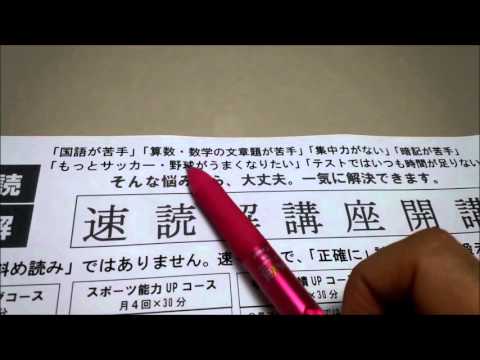 「国語が苦手」「算数・数学の文章題が苦手」「集中力がない」「暗記が苦手」
「もっとサッカー・野球がうまくなりたい」「テストではいつも時間が足りない
そんな悩み ら、大丈夫。一気に解決できます。
読
解
速読解講座開講
斜め読み」ではありません。速 、「正確に」
コース
スポーツ能力UPコース
月4回×30分
UPコース
×30分